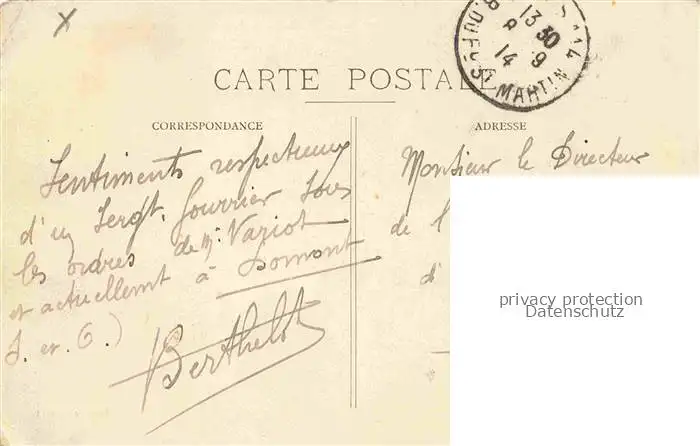 CARTE POSTALE
13 30
8 9
14
R. DU FG ST MARTIN
CORRESPONDANCE
ADRESSE
Sentiments respectueux
d'un Sergt. fourrier sous
les ordres de Mr. Variot
et actuellemt à Domont
S. et. O.)
Berthelot
Monsieur le Directeur
de l
d'
privacy protection
Datenschutz